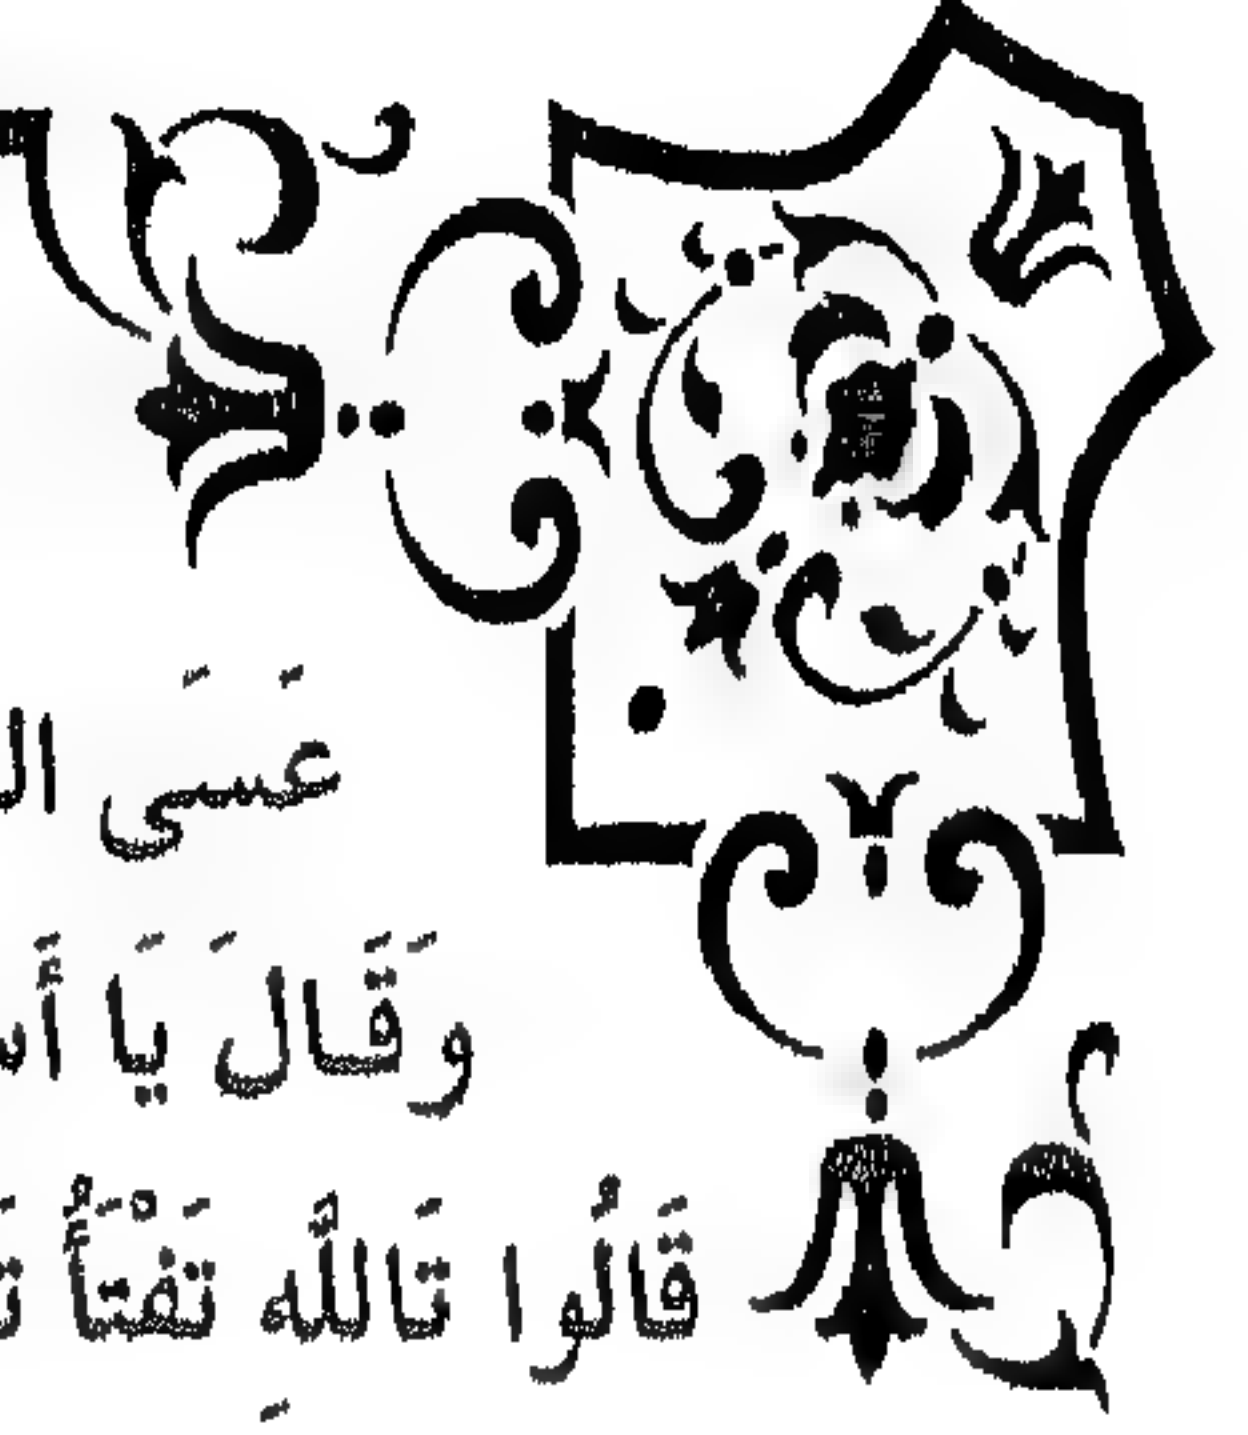 عَسَى
وَقَالَ يَا
قَالُوا تَاللَّهِ تَفْتَأُ